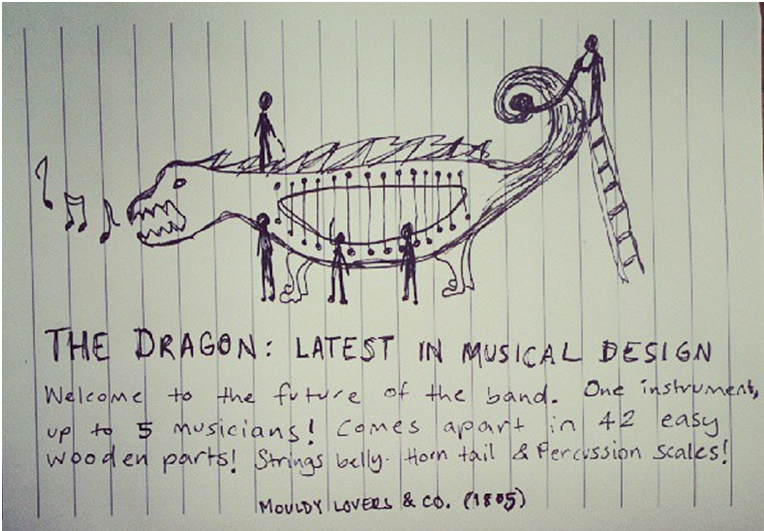 THE DRAGON: LATEST IN MUSICAL DESIGN
Welcome to the future of the band. One instrument,
up to 5 musicians! Comes apart in 42 easy
wooden parts! Strings belly. Horn tail & Percussion scales!
MOULDY LOVERS & CO. (1805)